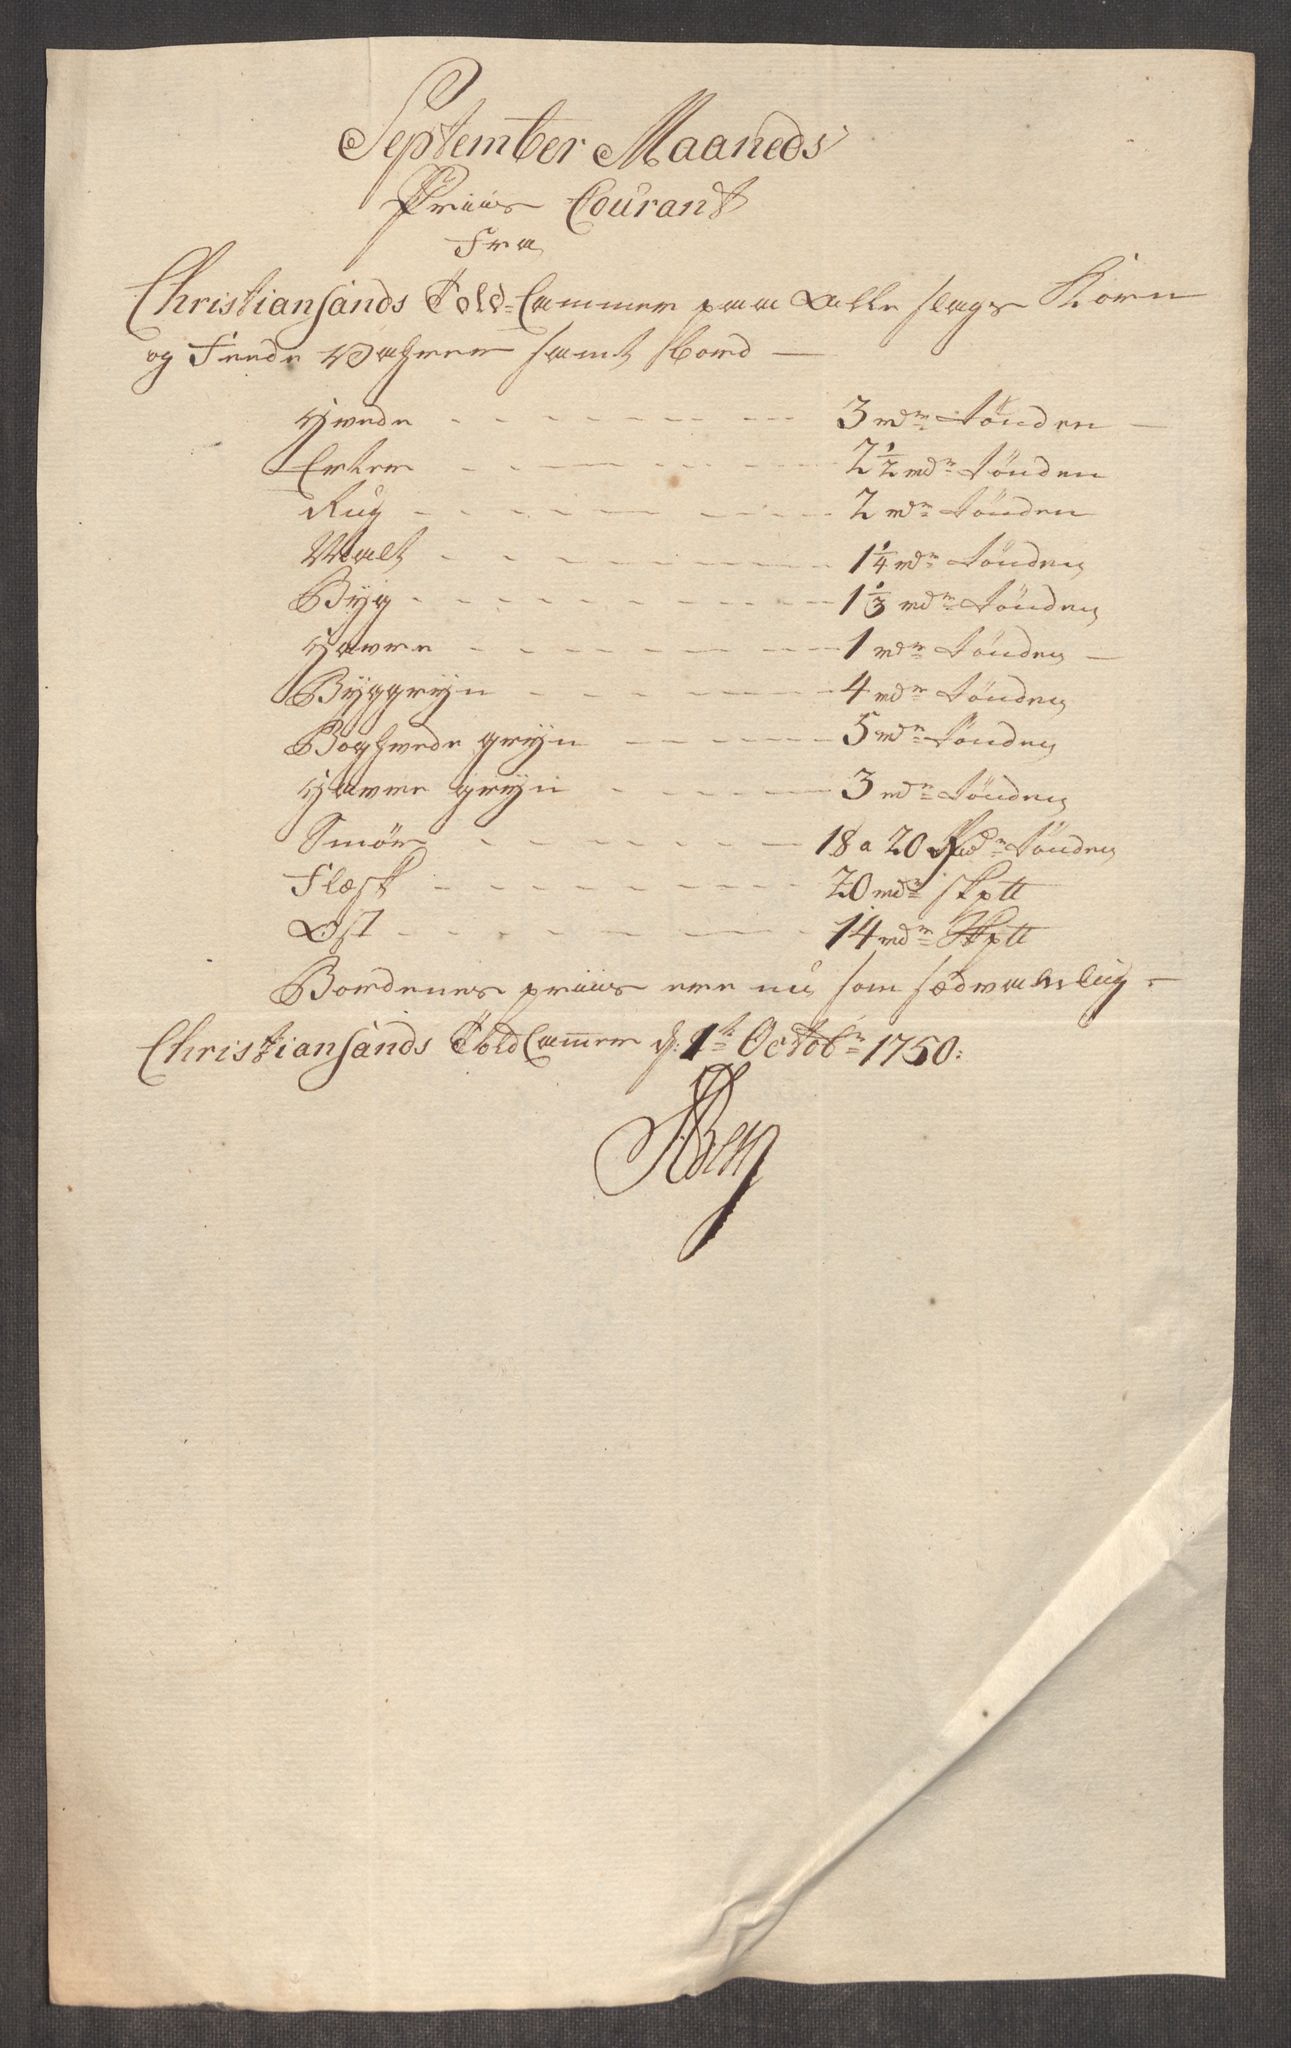 September Maaneds
Priis Courant
Fra
Christiansands Told-Cammer paa Alle slags Korn
og Feede Vahrer samt Bord —
Hvede - - - - - - - 3 rdr Tönden —
Erter - - - - - - - 2 1/2 rdr Tönden
Rug - - - - - - - 2 rdr Tönden
Malt - - - - - - - 1 1/4 rdr Tönden
Byg - - - - - - - 1 1/3 rdr Tönden
Havre - - - - - - - 1 rdr Tönden —
Byggryn - - - - - - - 4 rdr Tönden
Boghvede gryn - - - - - 5 rdr Tönden
Havre gryn - - - - - 3 rdr Tönden
Smör - - - - - - - 18 a 20 Rdr Tönden
Flesk - - - - - - - 20 rdr skptt
Ost - - - - - - - 14 rdr Skptt
Bordenes priis ere nu som sædvahnlig -
Christiansands Told Camer d: 1te Octobr 1750: